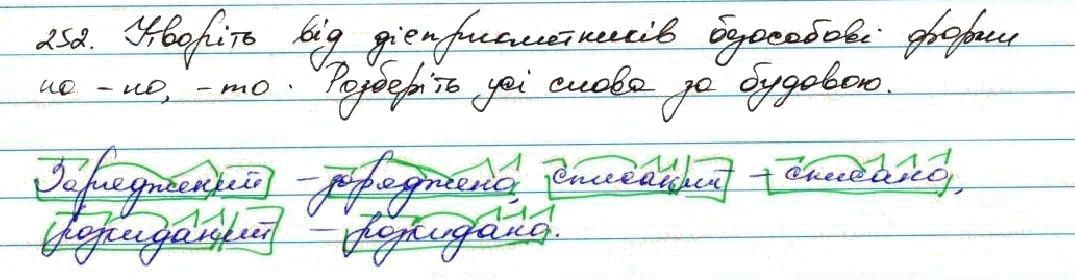 252. Утворіть від дієприкметників безособові форми
на -но, -то. Розберіть усі слова за будовою.
Заряджений - заряджено, списаний - списано,
розкиданий - розкидано.